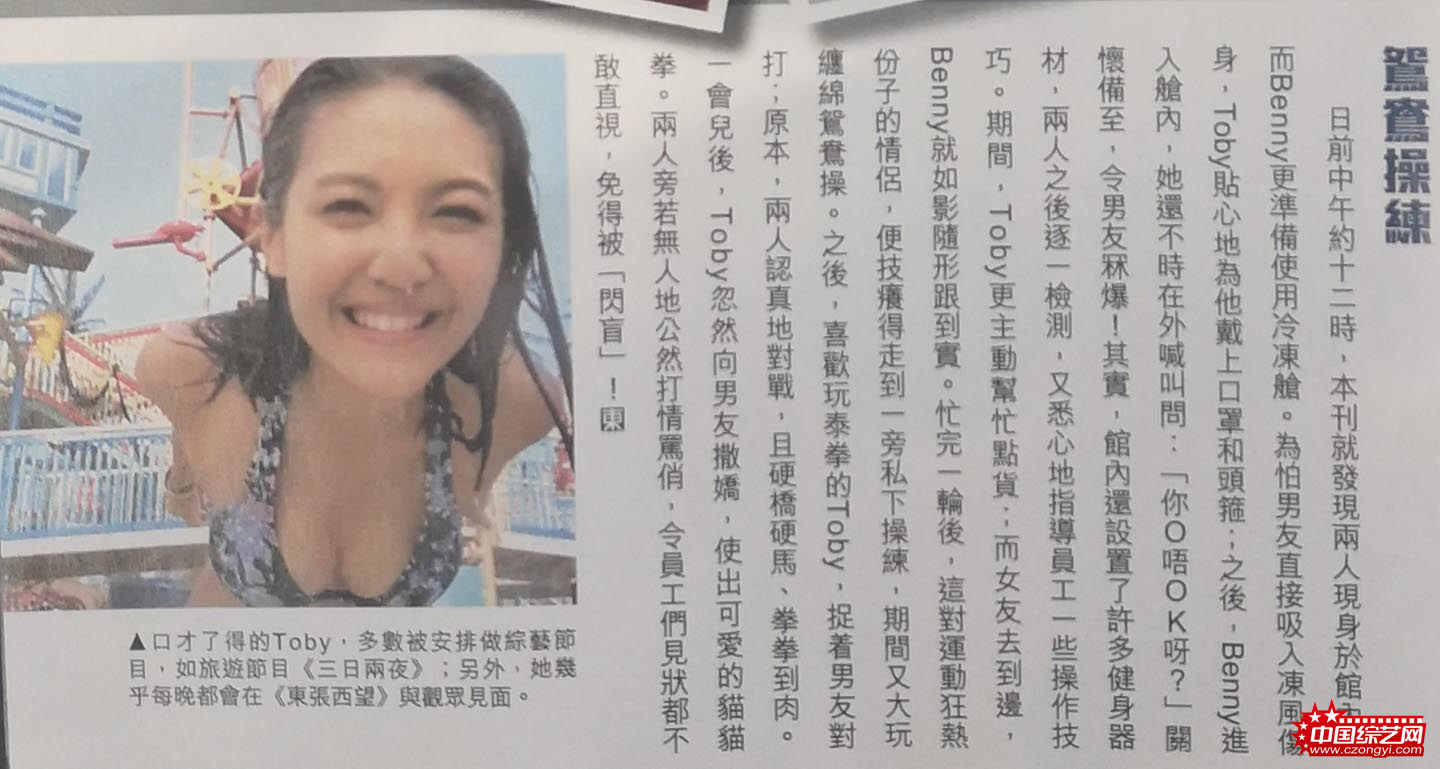 鴛鴦操練
日前中午約十二時，本刊就發現兩人現身於館內
而Benny更準備使用冷凍艙。為怕男友直接吸入凍風傷
身，Toby貼心地為他戴上口罩和頭箍；之後，Benny進
入艙內，她還不時在外喊叫問：「你O唔OK呀？」關
懷備至，令男友冧爆！其實，館內還設置了許多健身器
材，兩人之後逐一檢測，又悉心地指導員工一些操作技
巧。期間，Toby更主動幫忙點貨；而女友去到邊，
Benny就如影隨形跟到實。忙完一輪後，這對運動狂熱
份子的情侶，便技癢得走到一旁私下操練，期間又大玩
纏綿鴛鴦操。之後，喜歡玩泰拳的Toby，捉着男友對
打；原本，兩人認真地對戰，且硬橋硬馬、拳拳到肉。
一會兒後，Toby忽然向男友撒嬌，使出可愛的貓貓
拳。兩人旁若無人地公然打情罵俏，令員工們見狀都不
敢直視，免得被「閃盲」！東
▲口才了得的Toby，多數被安排做綜藝節
目，如旅遊節目《三日兩夜》；另外，她幾
乎每晚都會在《東張西望》與觀眾見面。
中国综艺网
www.czongyi.com